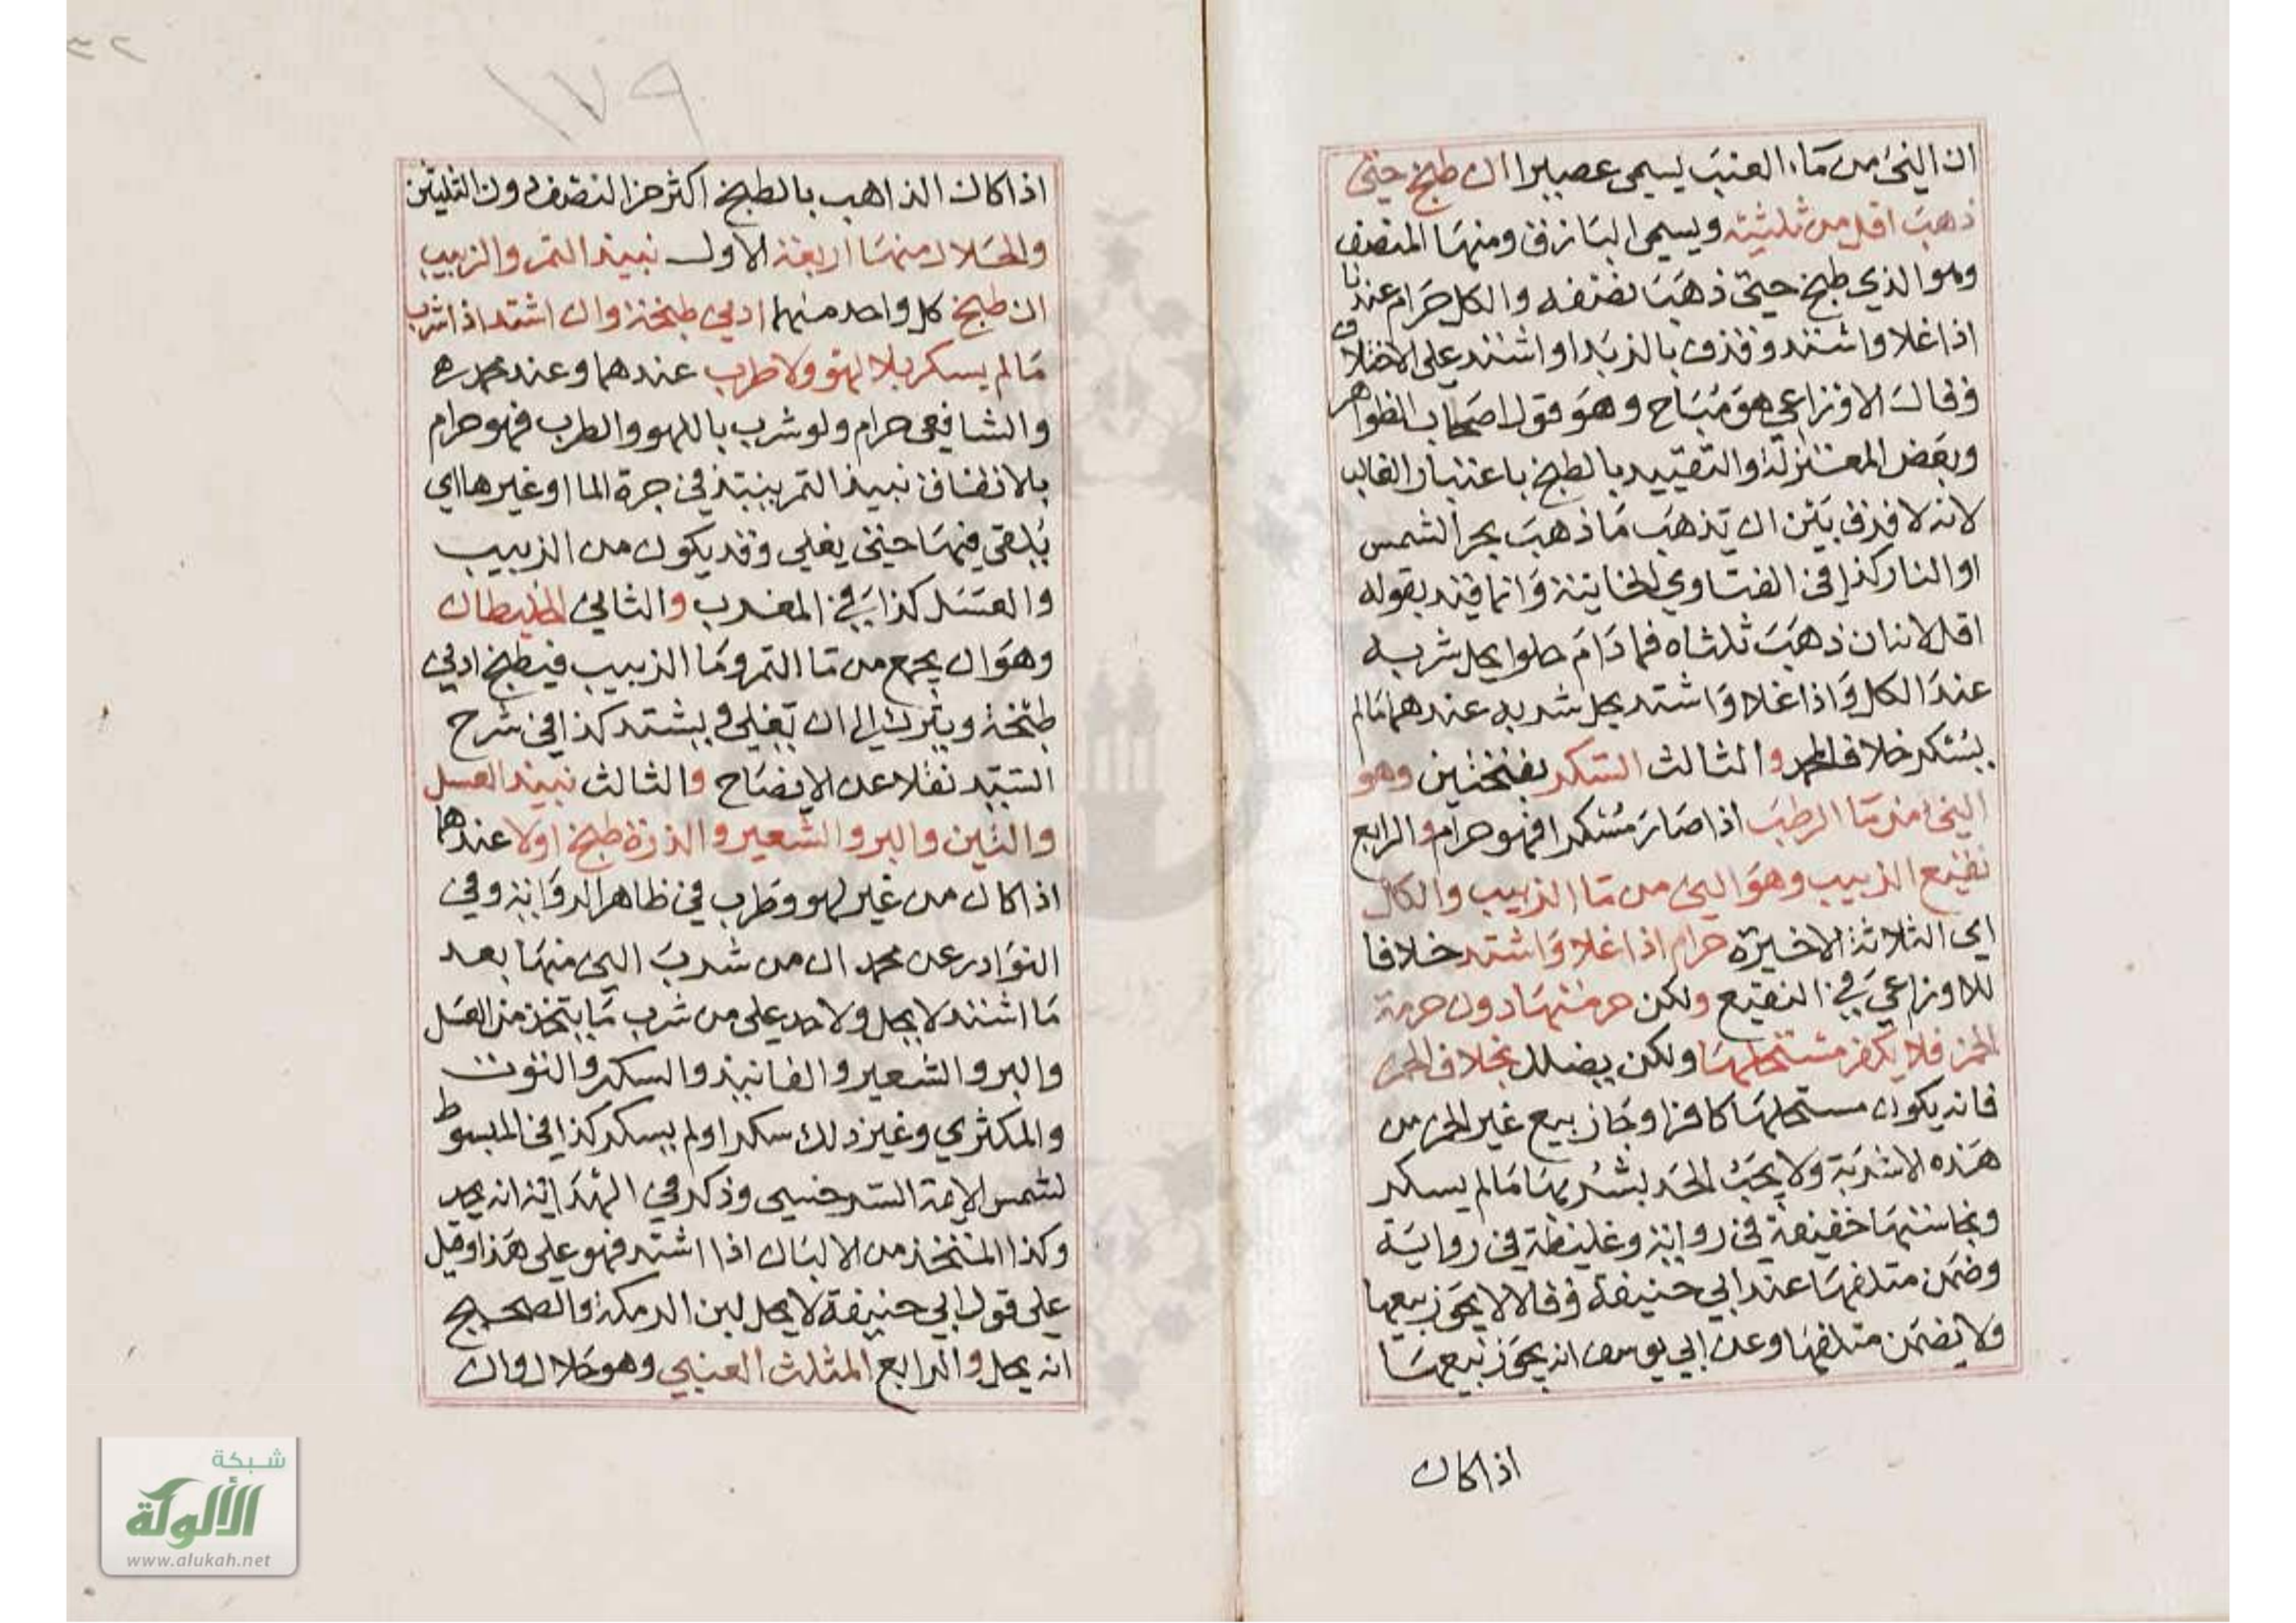 ان النيّ من ماء العنب يسمى عصيرا ان طبخ حتى
ذهب اقل من ثلثيه ويسمى الباذق ومنها المنصف
وهو الذي طبخ حتى ذهب نصفه والكل حرام عندنا
اذا غلا واشتد وقذف بالزبد او اشتد على الاختلاف
وقال الاوزاعي هو مباح وهو قول اصحاب الظواهر
وبعض المعتزلة والتقييد بالطبخ باعتبار الغالب
لانه لا فرق بين ان يذهب ما ذهب بحر الشمس
او النار كذا في الفتاوي الخانية وانما قيد بقوله
اقل لان ان ذهب ثلثاه فما دام حلوا يحل شربه
عند الكل واذا غلا واشتد يحل شربه عندهما مالم
يسكر خلافا لمحمد والثالث السكر بفتحتين وهو
النيّ من ما الرطب اذا صار مسكرا فهو حرام والرابع
نقيع الزبيب وهو الني من ما الزبيب والكل
اي الثلاثة الاخيرة حرام اذا غلا واشتد خلافا
للاوزاعي في النقيع ولكن حرمتها دون حرمة
الخمر فلا يكفر مستحلها ولكن يضلل بخلاف الخمر
فانه يكون مستحلها كافرا وجاز بيع غير الخمر من
هذه الاشربة ولا يجب الحد بشربها مالم يسكر
ونجاستها خفيفة في رواية وغليظة في رواية
وضمن متلفها عند ابي حنيفة وقالا لا يجوز بيعها
ولا يضمن متلفها وعن ابي يوسف انه يجوز بيعها
اذا كان
١٧٩
اذا كان الذاهب بالطبخ اكثر من النصف دون الثلثين
والحلال منها اربعة الاول نبيذ التمر والزبيب
ان طبخ كل واحد منهما ادنى طبخة وان اشتد اذا شرب
مالم يسكر بلا لهو ولا طرب عندهما وعند محمد ره
والشافعي حرام ولو شرب باللهو والطرب فهو حرام
بالاتفاق نبيذ التمر ينبتذ في جرة الما او غيرها اي
يلقى فيها حتى يغلي وقد يكون من الزبيب
والعسل كذا في المغرب والثاني الخليطان
وهو ان يجمع من ما التمر وما الزبيب فيطبخ ادنى
طبخة ويترك الى ان يغلي ويشتد كذا في شرح
السيد نقلا عن الايضاح والثالث نبيذ العسل
والتين والبر والشعير والذرة طبخ اولا عندهما
اذا كان من غير لهو وطرب في ظاهر الرواية وفي
النوادر عن محمد ان من شرب الني منها بعد
ما اشتد لا يحل ولا حد على من شرب ما يتخذ من العسل
والبر والشعير والفانيذ والسكر والتوت
والمكثري وغير ذلك سكر اولم يسكر كذا في المبسوط
لشمس الايمة السرخسي وذكر في الهداية انه يحد
وكذا المتخذ من الالبان اذا اشتد فهو على هذا وقيل
على قول ابي حنيفة لا يحل لبن الرمكة والصحيح
انه يحل والرابع المثلث العنبي وهو حلال وان
شبكة
الألوكة
www.alukah.net